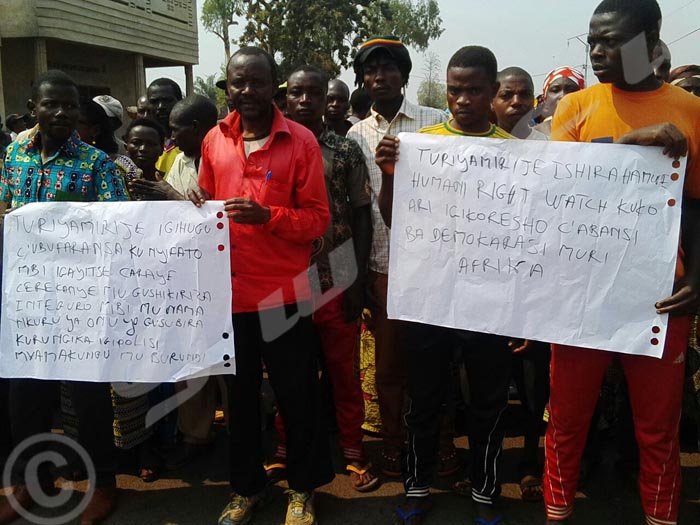 TURIYAMIRIJE IGIHUGU
C'UBUFARANSA KU NYIFATO
MBI IGAYITSE CARAYE
CEREKANYE MU GUSHIKIRIZA
INTEGURO MBI MU NAMA
NKURU YA ONU YO GUSUBIRA
KURUNGIKA IGIPOLISI
MVAMAKUNGU MU BURUNDI
TURIYAMIRIJE ISHIRAHAMWE
HUMAN RIGHT WATCH KUKO
ARI IGIKORESHO C'ABANSI
BA DEMOKARASI MURI
AFRIKA
©